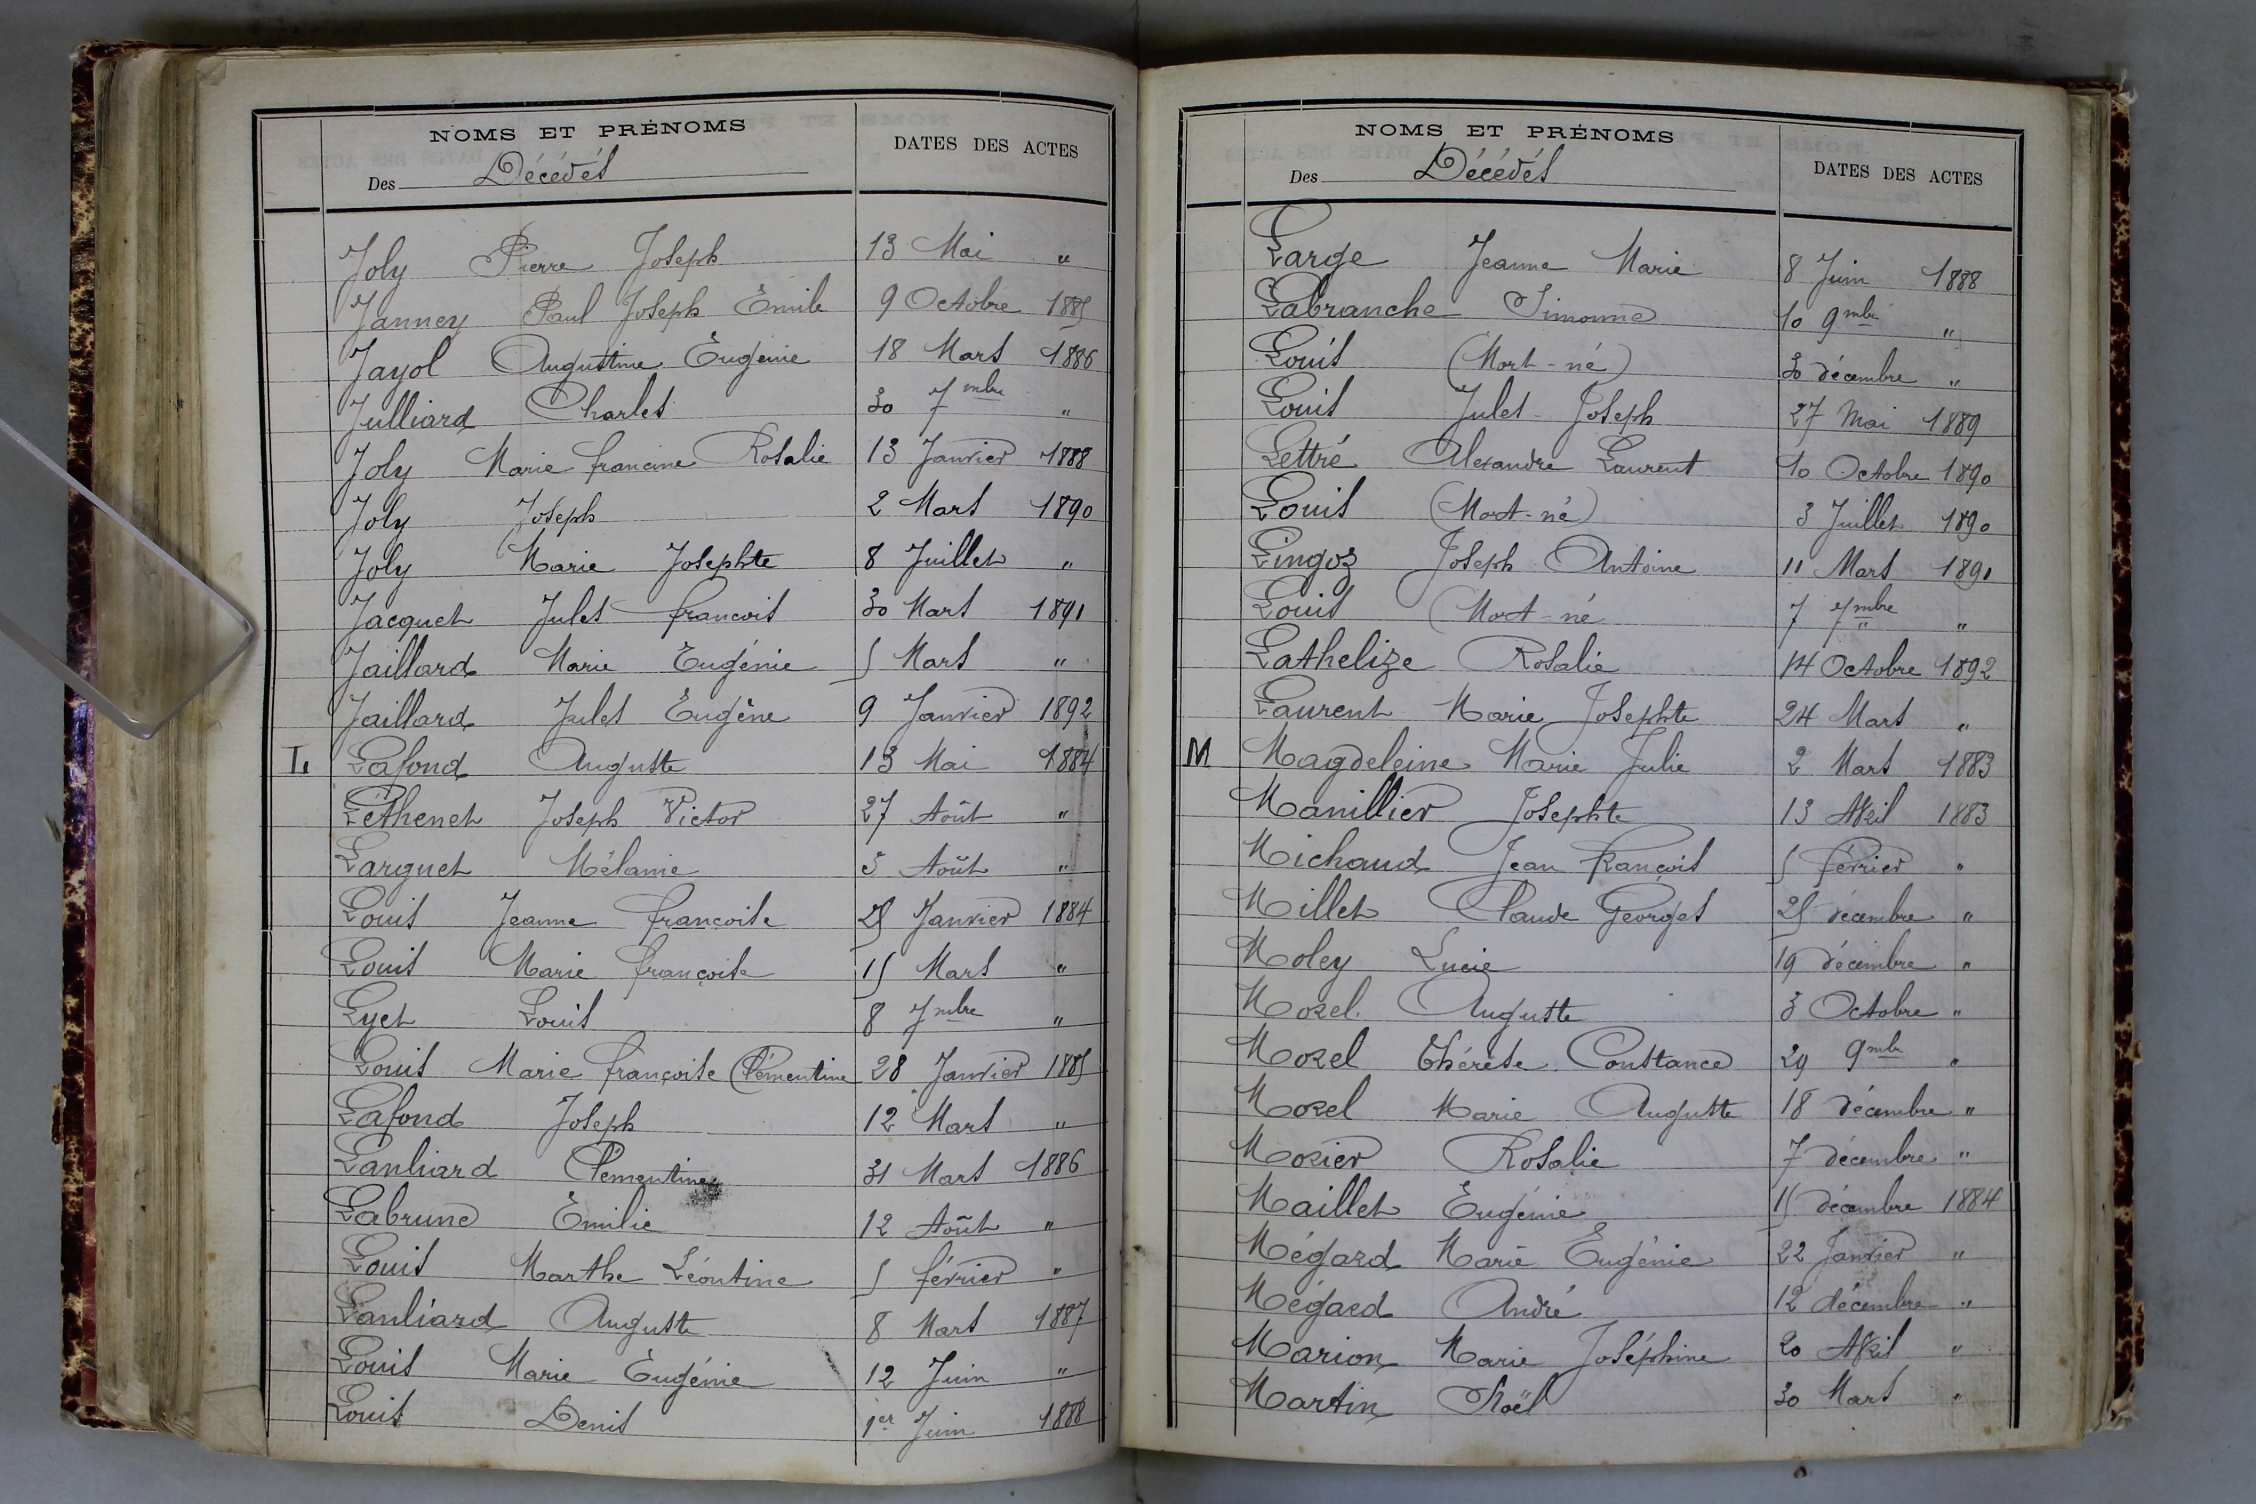 NOMS ET PRÉNOMS
DATES DES ACTES
Des Décédés
Joly Pierre Joseph 13 Mai "
Janney Paul Joseph Émile 9 Octobre 1885
Jayol Augustine Eugénie 18 Mars 1886
Julliard Charles 30 7mbre "
Joly Marie francine Rosalie 13 Janvier 1888
Joly Joseph 2 Mars 1890
Joly Marie Josephte 8 Juillet "
Jacquet Jules francois 30 Mars 1891
Jaillard Marie Eugénie 5 Mars "
Jaillard Jules Eugène 9 Janvier 1892
L Lafond Auguste 13 Mai 1884
Léthenet Joseph Victor 27 Août "
Larguet Mélanie 3 Août "
Louis Jeanne françoise 25 Janvier 1884
Louis Marie françoise 15 Mars "
Lyet Louis 8 7mbre "
Louis Marie françoise Clémentine 28 Janvier 1885
Lafond Joseph 12 Mars "
Lanliard Clementine 31 Mars 1886
Labrune Émilie 12 Août "
Louis Marthe Léontine 5 février "
Lanliard Auguste 8 Mars 1887
Louis Marie Eugénie 12 Juin "
Louis Denis 1er Juin 1888
NOMS ET PRÉNOMS
DATES DES ACTES
Des Décédés
Large Jeanne Marie 8 Juin 1888
Labranche Simonne 10 9mbre "
Louis (Mort-né) 30 décembre "
Louis Jules-Joseph 27 Mai 1889
Lettré Alexandre Laurent 10 Octobre 1890
Louis (Mort-né) 3 Juillet 1890
Lingoz Joseph Antoine 11 Mars 1891
Louis (Mort-né 7 7mbre "
Lathelize Rosalie 14 Octobre 1892
Laurent Marie Josephte 24 Mars "
M Magdeleine Marie Julie 2 Mars 1883
Manillier Josephte 13 Avril 1883
Michaud Jean françois 5 février "
Millet Claude Georges 25 décembre "
Moley Lucie 19 décembre "
Morel Auguste 3 Octobre "
Morel Thérèse Constance 29 9mbre "
Morel Marie Auguste 18 décembre "
Mozier Rosalie 7 décembre "
Maillet Eugénie 15 décembre 1884
Mégard Marie Eugénie 22 Janvier "
Mégard André 12 décembre "
Marion Marie Joséphine 20 Avril "
Martin Noël 30 Mars "